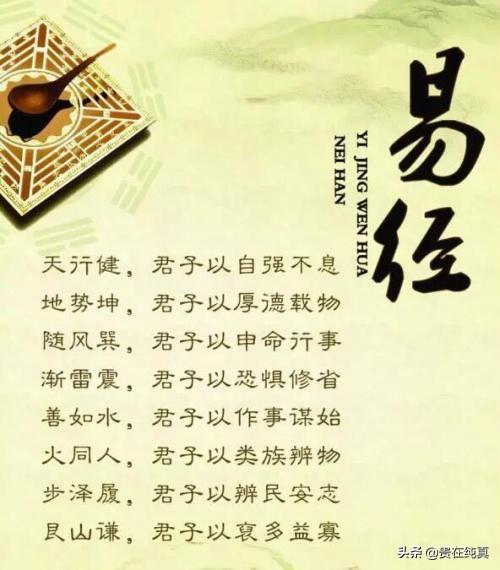 易经
YI JING WEN HUA
NEI HAN
天行健，君子以自强不息
地势坤，君子以厚德载物
随风巽，君子以申命行事
渐雷震，君子以恐惧修省
善如水，君子以作事谋始
火同人，君子以类族辨物
步泽履，君子以辨民安志
艮山谦，君子以裒多益寡
头条 @贵在纯真